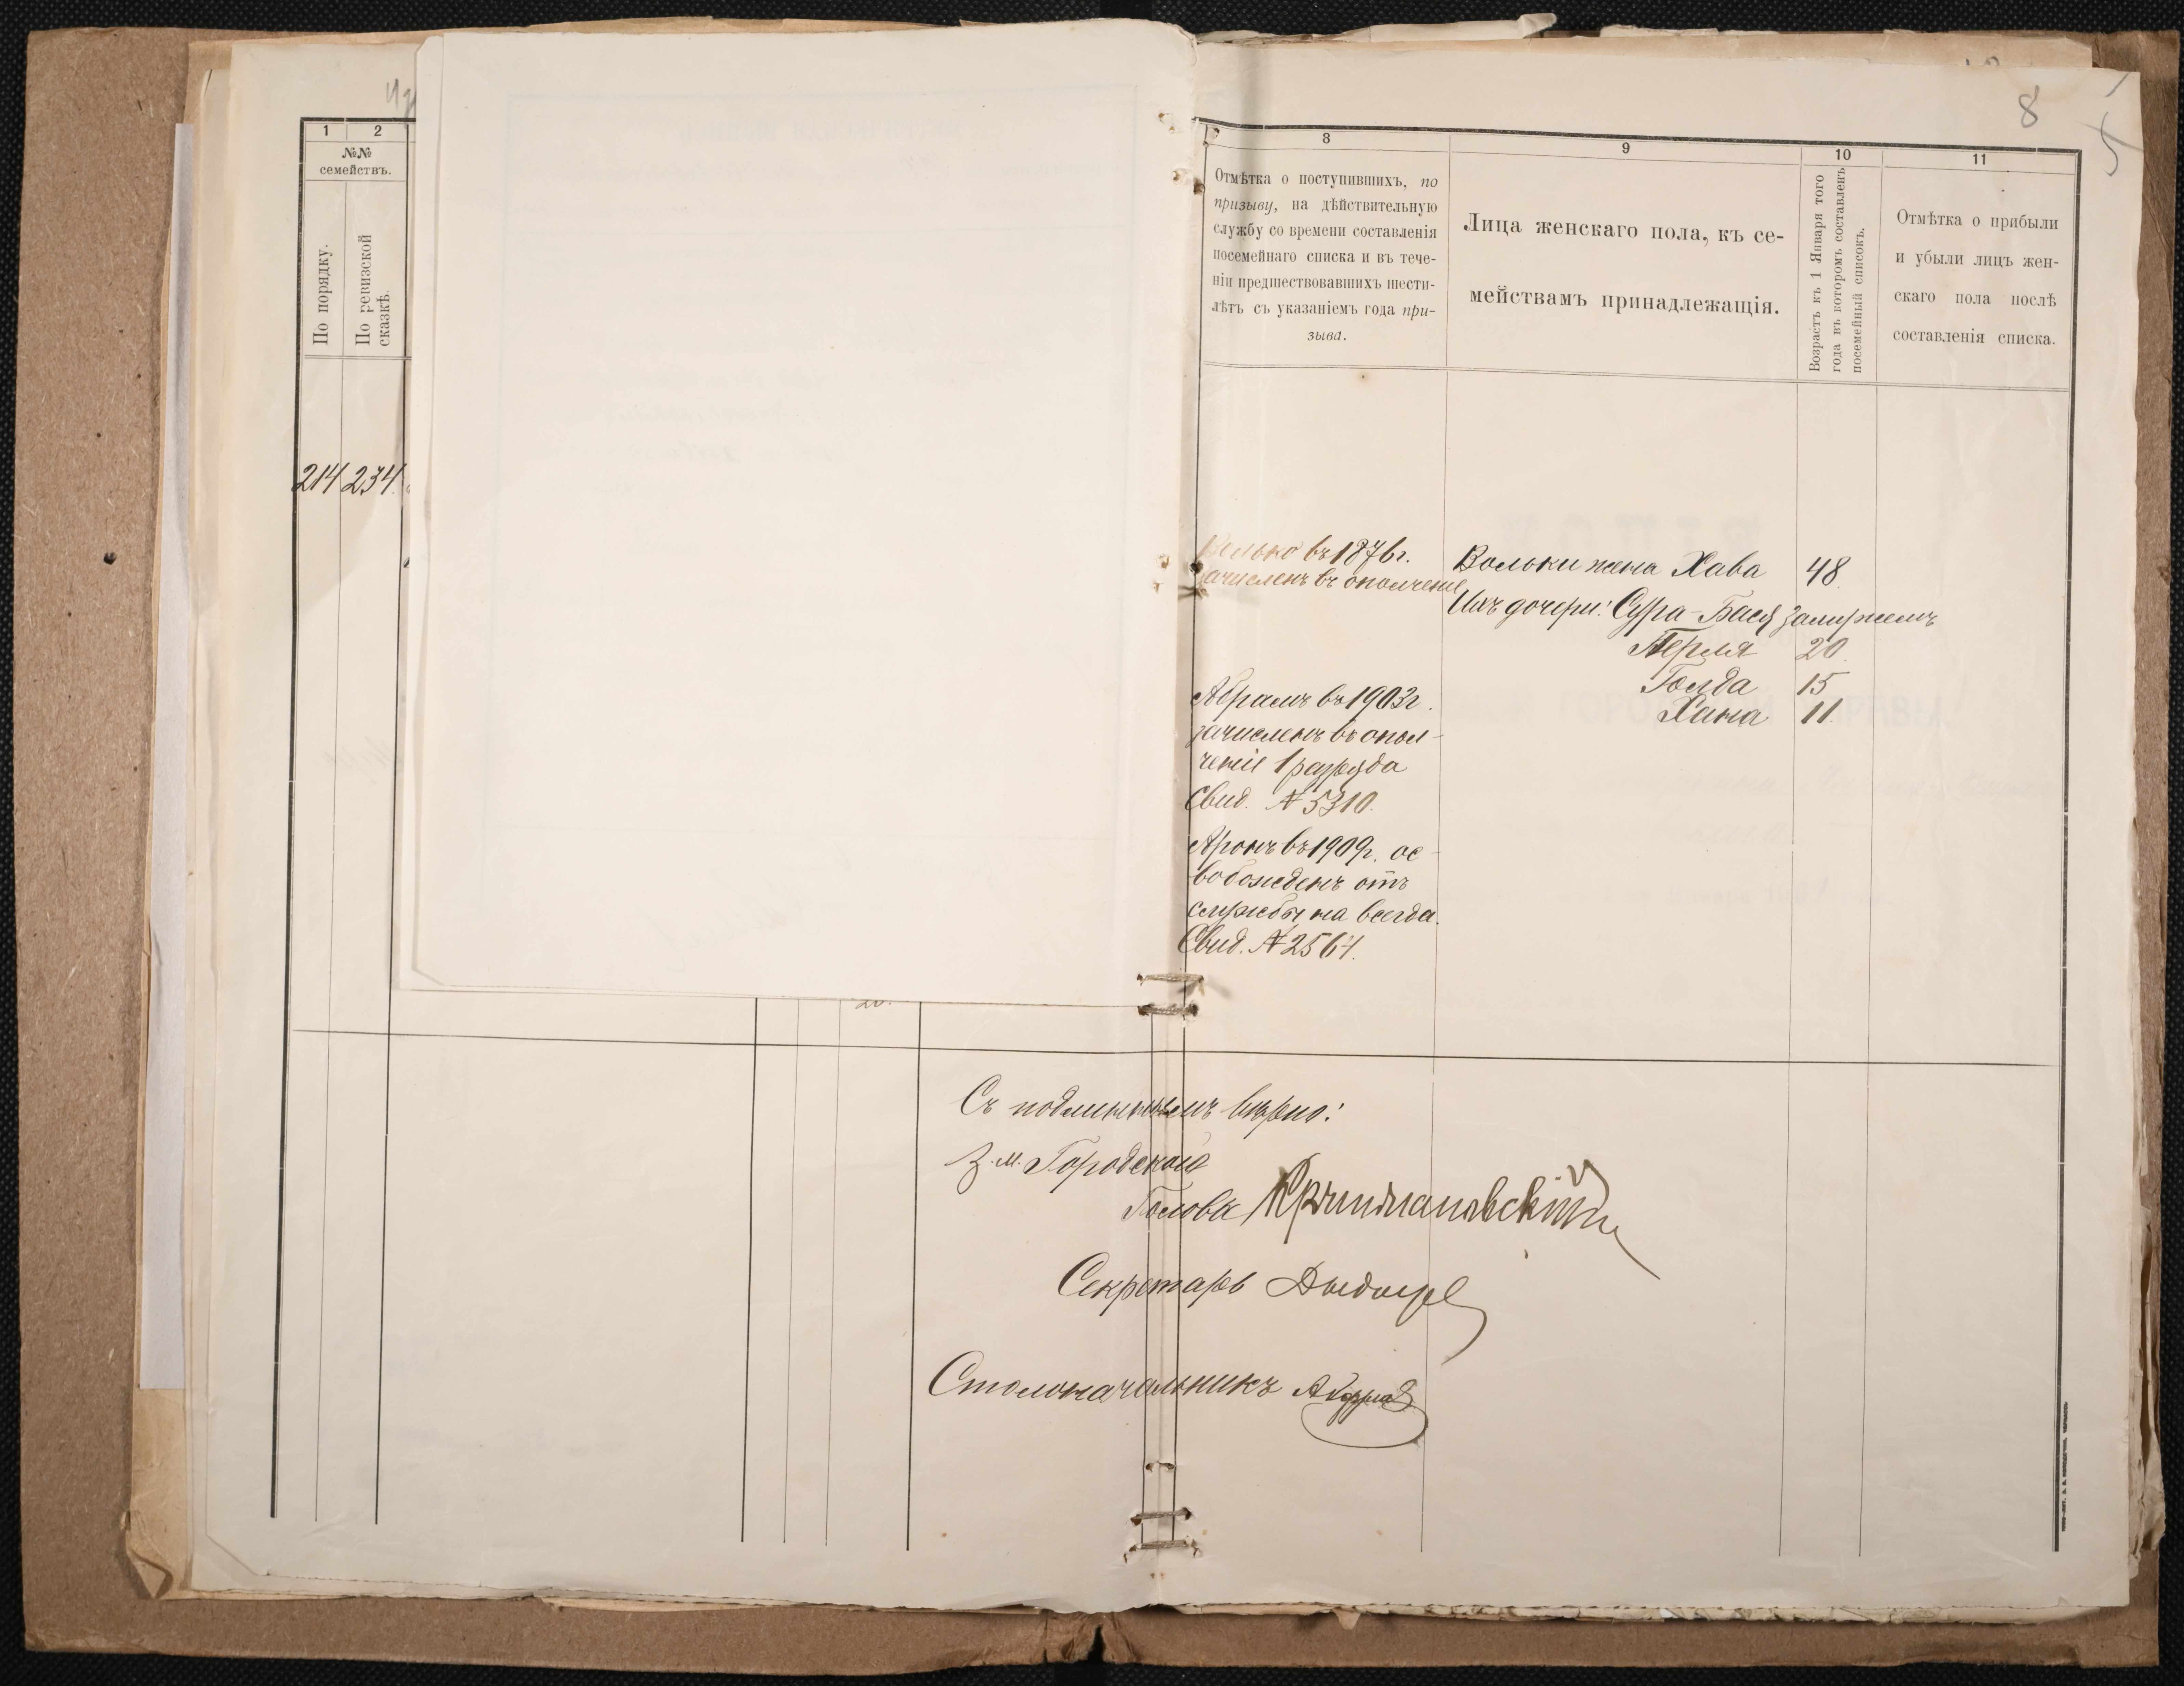 8
1 2
№№
семействъ.
По порядку.
По ревизской
сказкѣ.
214 234
8
Отмѣтка о поступившихъ, по
призыву, на дѣйствительную
службу со времени составленія
посемейнаго списка и въ тече-
ніи предшествовавшихъ шести-
лѣтъ съ указаніемъ года при-
зыва.
9
Лица женскаго пола, къ се-
мействамъ принадлежащія.
10
Возрастъ къ 1 Января того
года въ которомъ составленъ
посемейный списокъ.
11
Отмѣтка о прибыли
и убыли лицъ жен-
скаго пола послѣ
составленія списка.
въ 1876 г.
зачисленъ въ ополченіе
Абрамъ въ 1903 г.
зачисленъ въ опол-
ченіе 1 разряда
Свид. № 5310.
Аронъ въ 1909 г. ос-
вобожденъ отъ
службы на всегда.
Свид. № 2564.
Вольки жена Хава 48
Ихъ дочери: Сура-Бася замужемъ
Перля 20
Голда 15
Хана 11
Съ подлиннымъ вѣрно:
З. м. Городского
Голова
Секретарь
Столоначальникъ